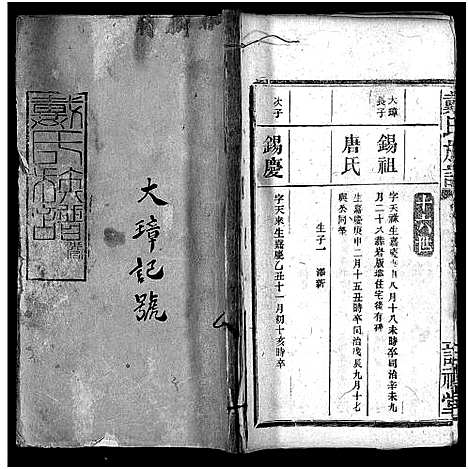 戴氏族譜
大璋記號
戴氏族譜
十六世
大璋
長子
錫祖
字天祿生嘉慶
八月十八未時卒同治辛未九
月二十八葬岩版塘住宅後有碑
唐氏
生嘉慶庚申二月十五丑時卒同治戊辰九月十七
與公同塋
生子一
澤新
次子
錫慶
字天來生嘉慶乙丑十一月初十亥時卒